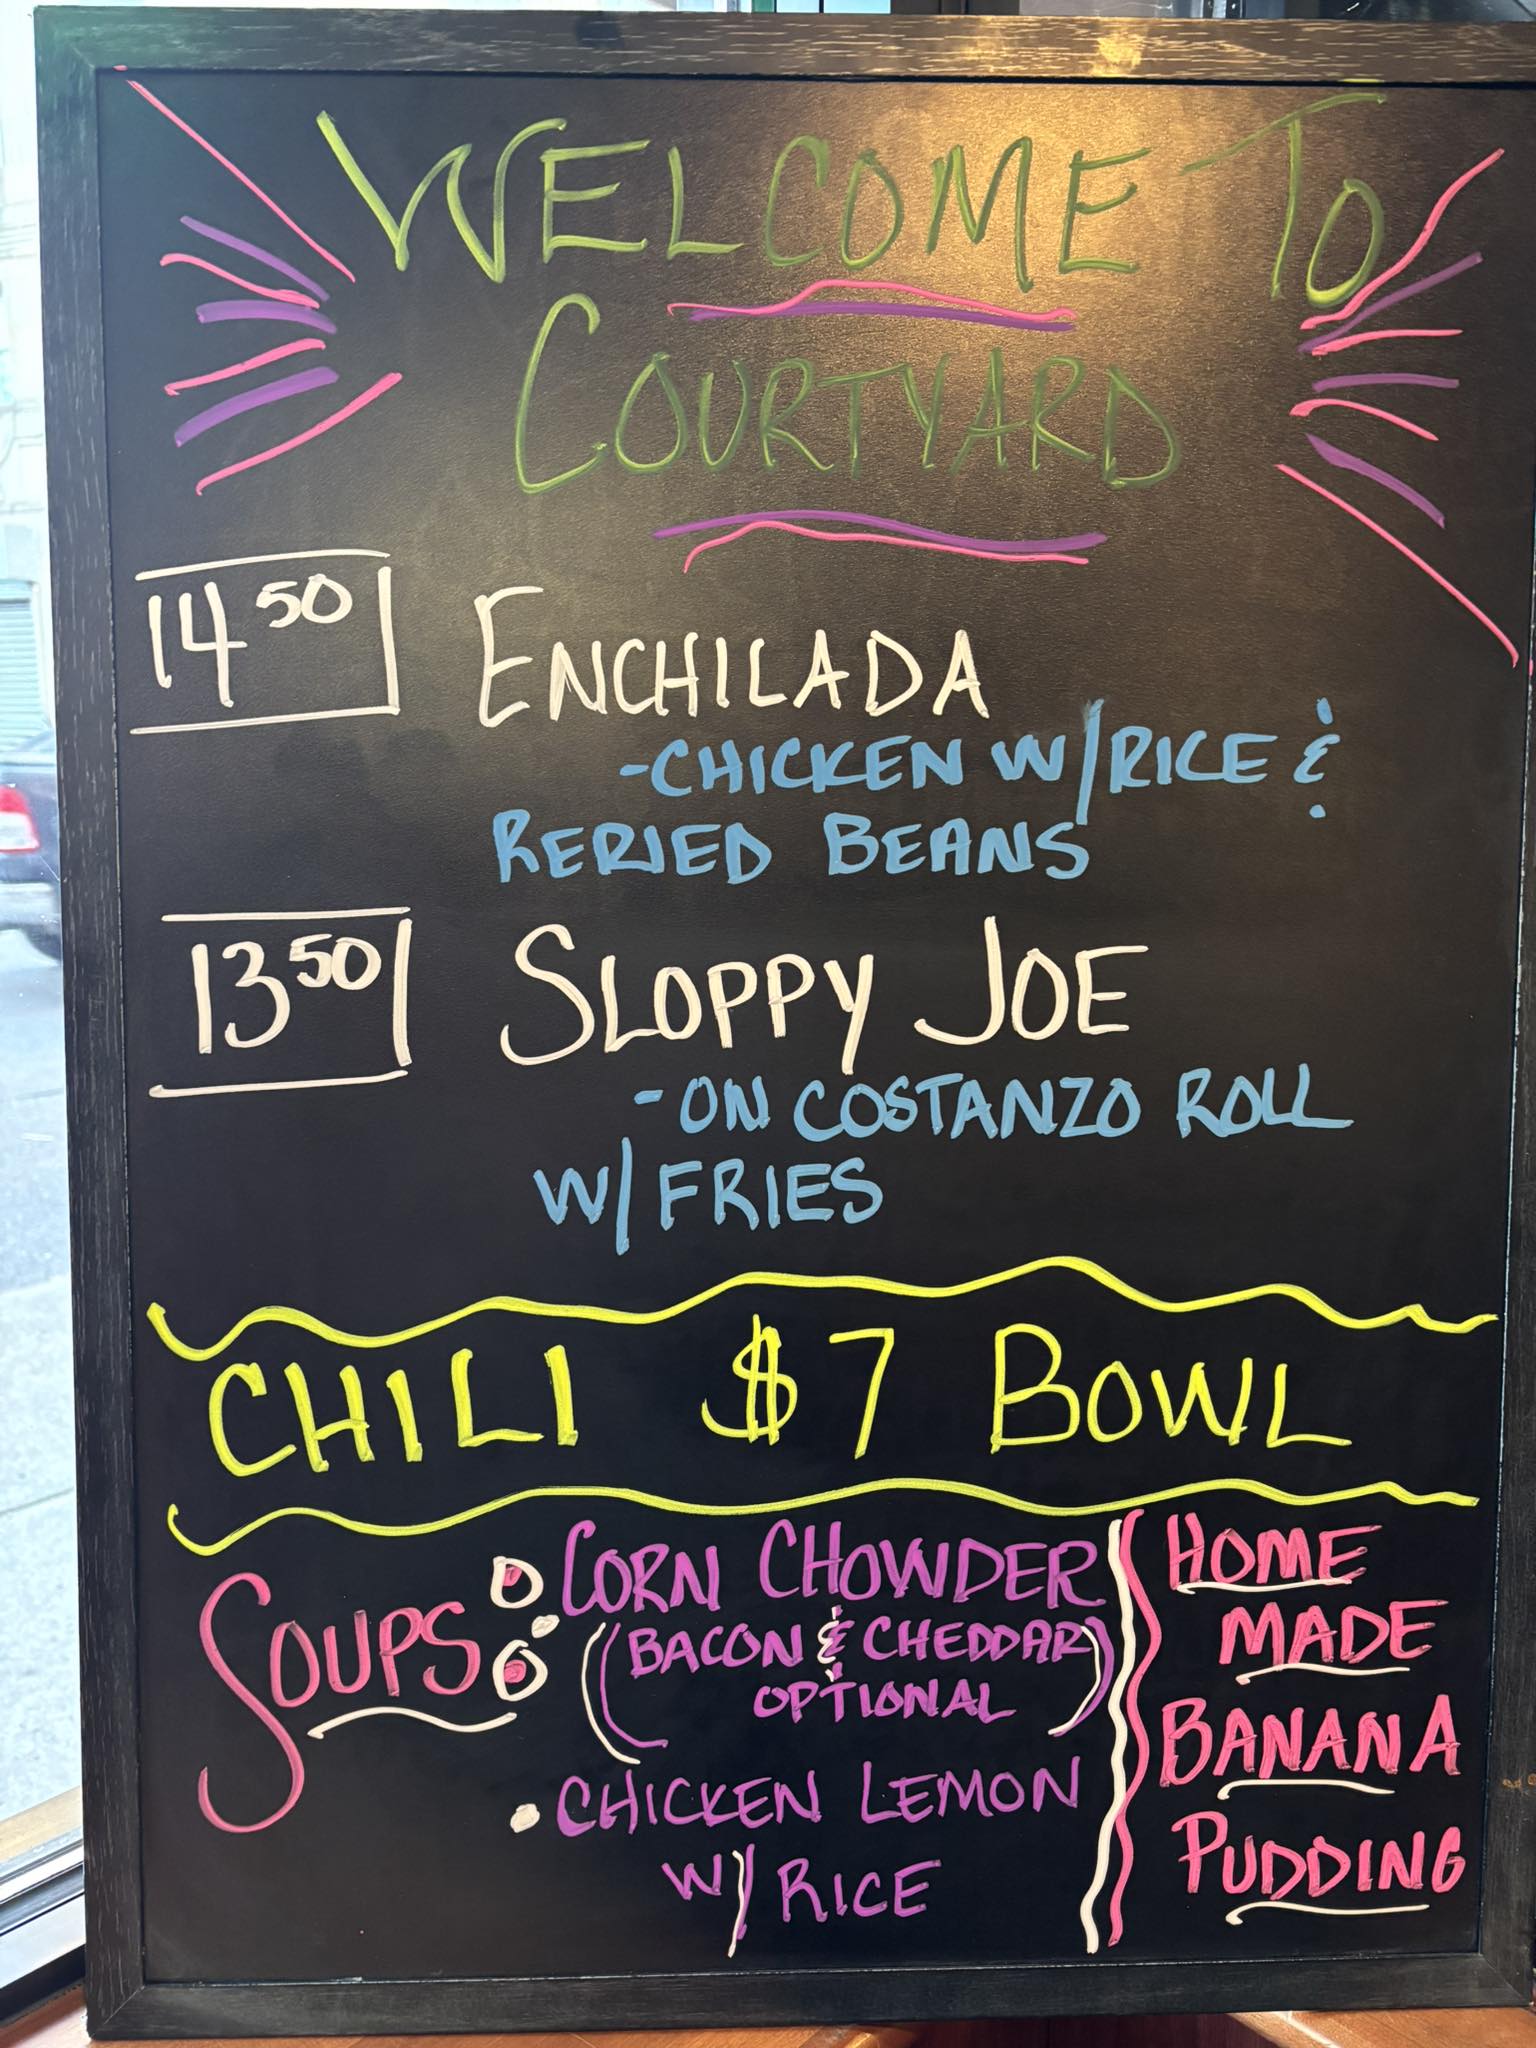 WELCOME TO
COURTYARD
14 50 ENCHILADA
-CHICKEN W/RICE &
RERIED BEANS
13 50 SLOPPY JOE
-ON COSTANZO ROLL
W/FRIES
CHILI $7 BOWL
SOUPS:
CORN CHOWDER
(BACON & CHEDDAR
OPTIONAL)
• CHICKEN LEMON
W/RICE
HOME
MADE
BANANA
PUDDING